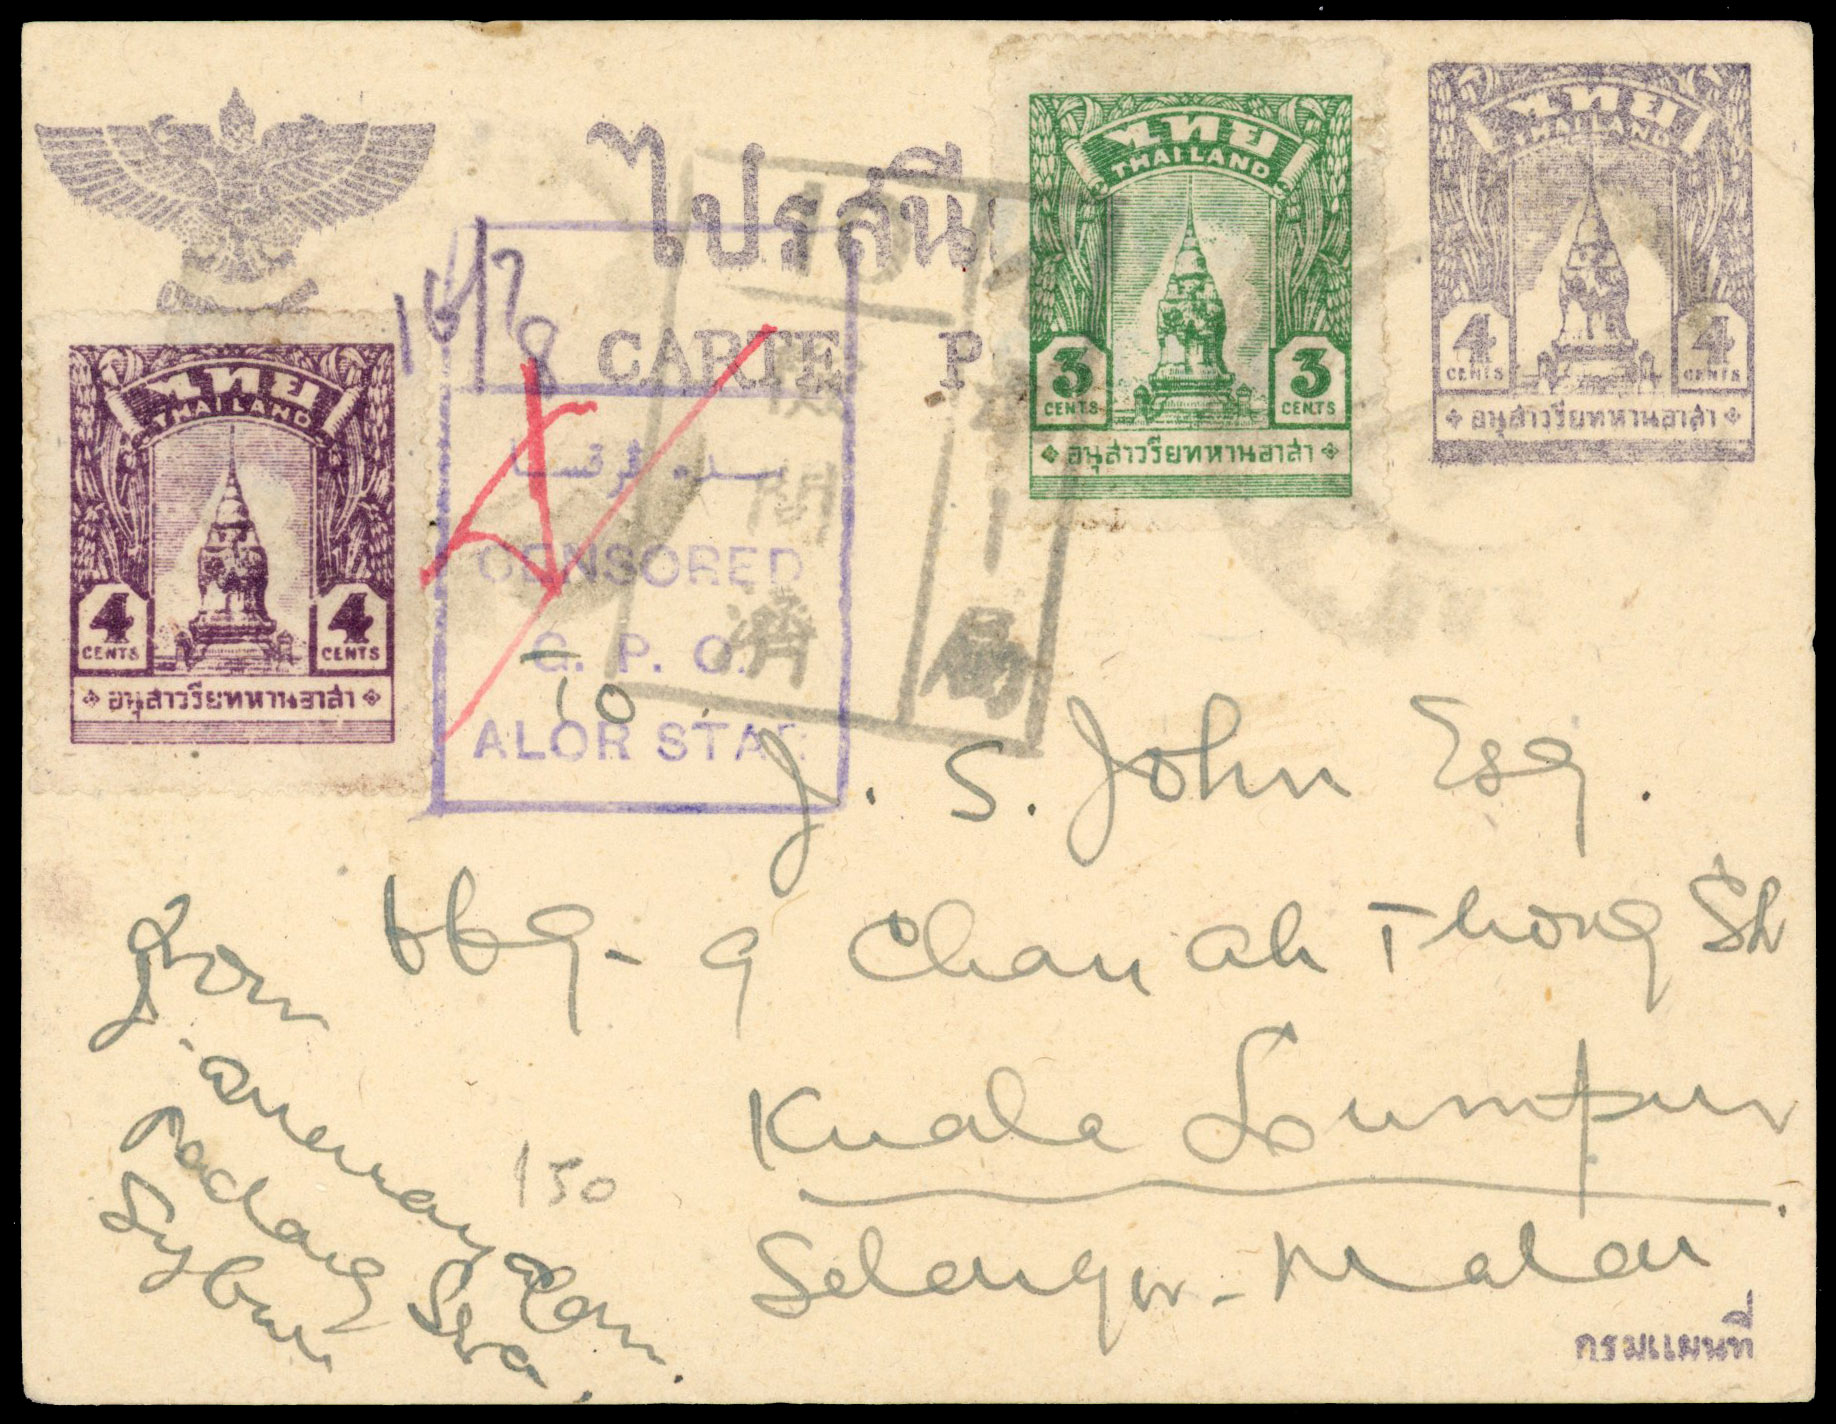 ไปรสนี
CARTE P
ไทย
THAILAND
3 3
CENTS CENTS
อนุสาวรียทหานอาสา
ไทย
THAILAND
4 4
CENTS CENTS
อนุสาวรียทหานอาสา
ไทย
THAILAND
4 4
CENTS CENTS
อนุสาวรียทหานอาสา
سده فرقسا
CENSORED
G. P. O.
ALOR STAR
10
検閲済
局
J. S. John Esq.
Chan Ah Thong St
Kuala Lumpur.
Selangor - Malai
From
Padang Sera.
150
กรมแผนที่